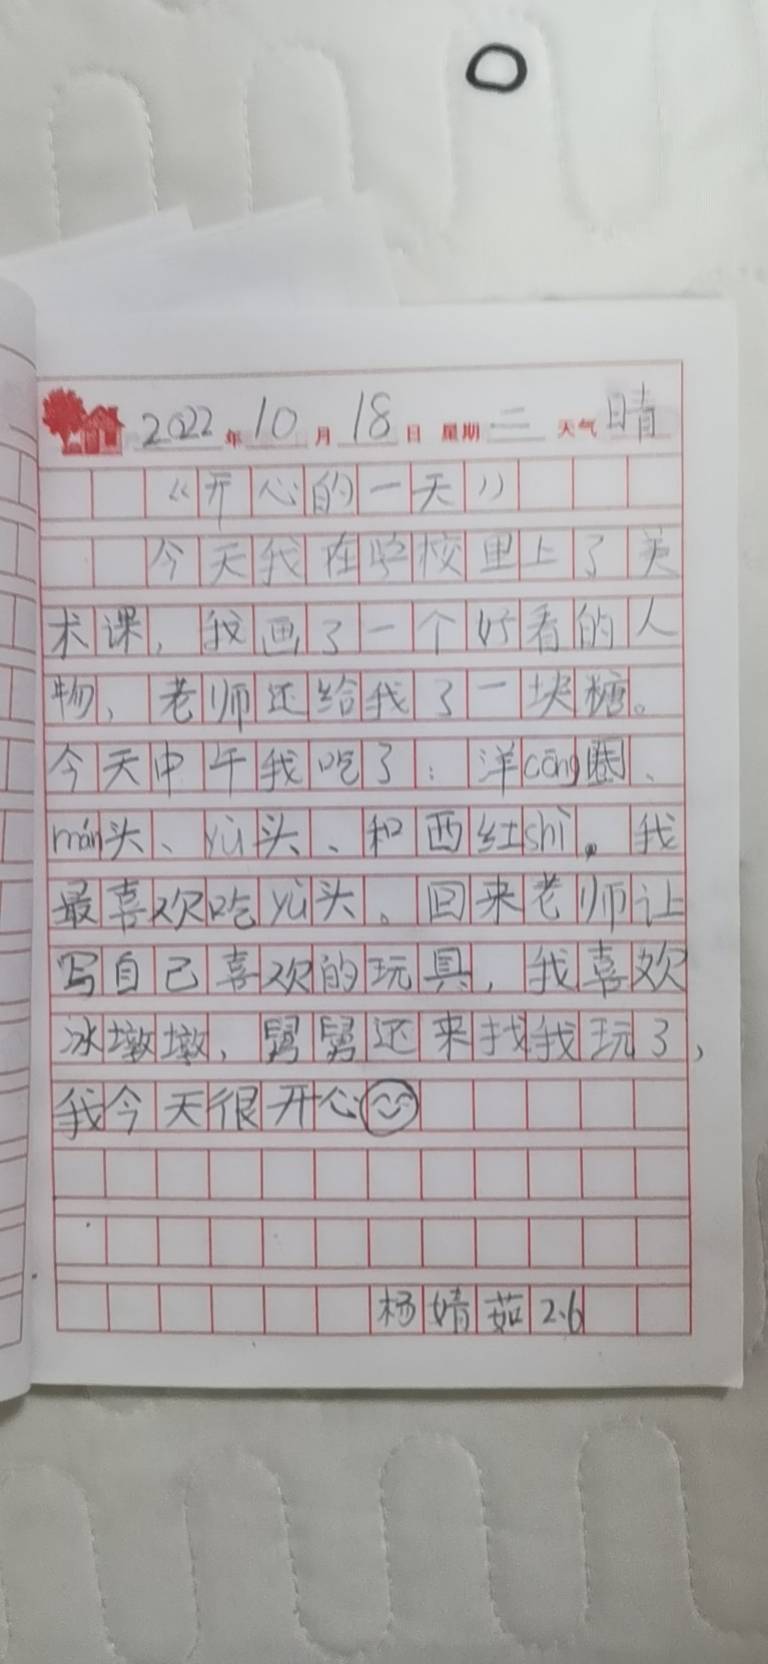 2022年10月18日 星期二 天气晴
《开心的一天》
今天我在学校里上了美
术课，我画了一个好看的人
物，老师还给我了一块糖。
今天中午我吃了：洋cōng圈、
mán头、yù头、和西红shì。我
最喜欢吃yù头。回来老师让
写自己喜欢的玩具，我喜欢
冰墩墩，舅舅还来找我玩了，
我今天很开心
杨婧茹2.6